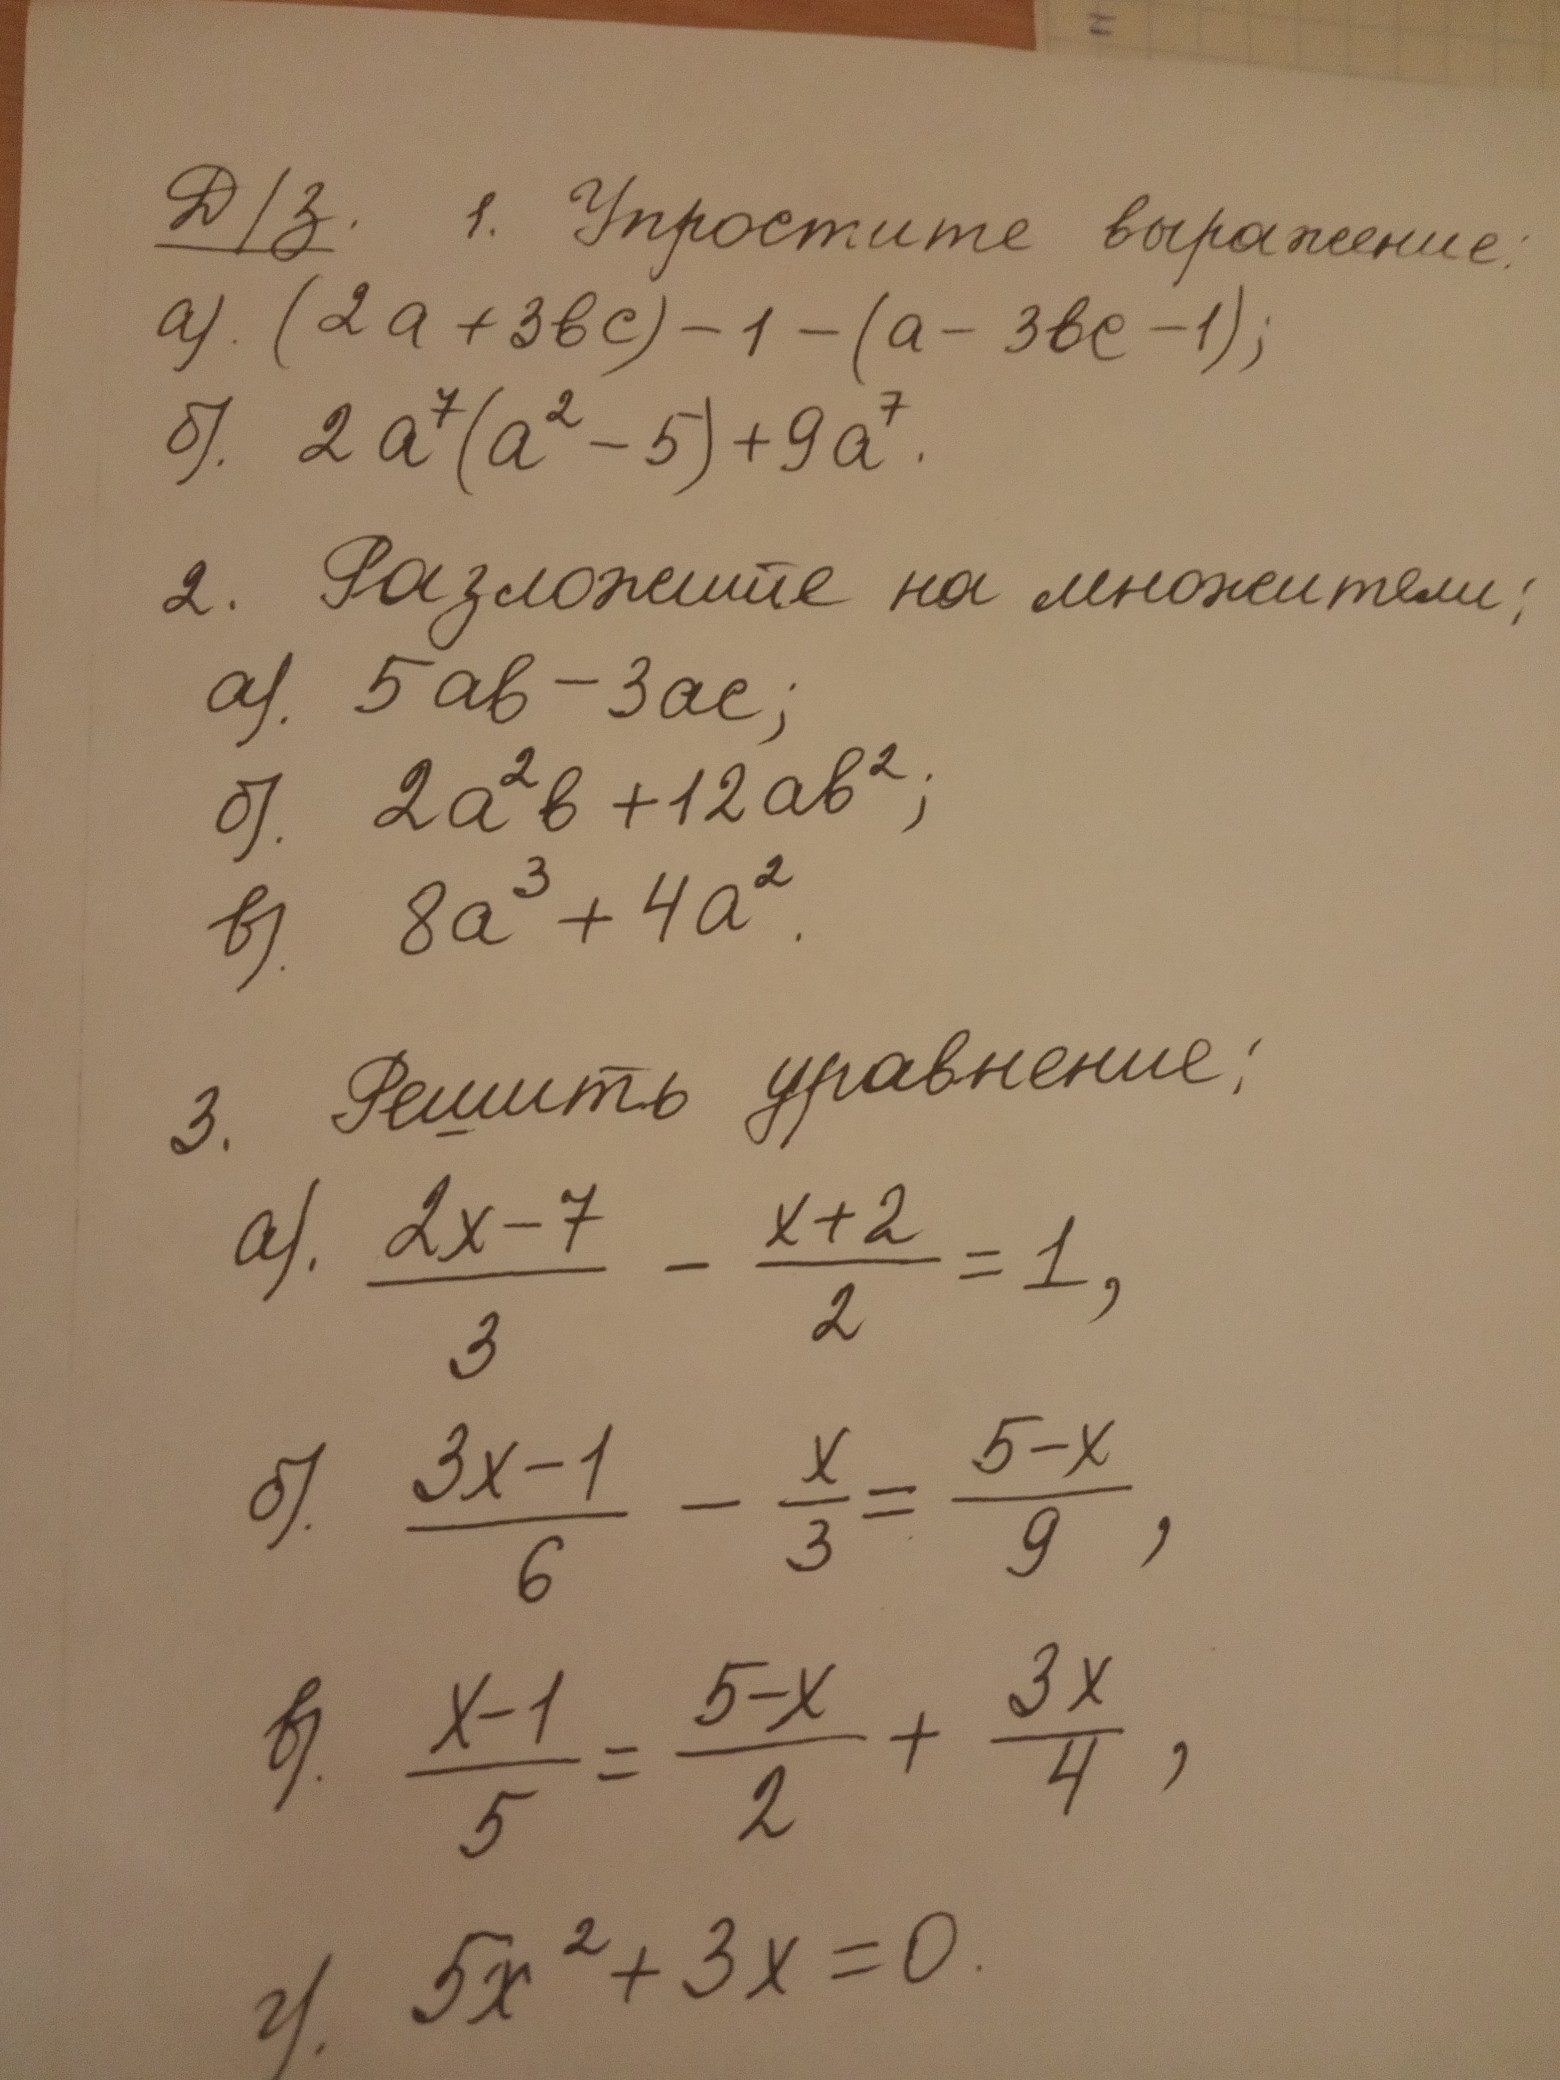 Д/З. 1. Упростите выражение:
а). (2a+3bc)-1-(a-3bc-1);
б). 2a⁷(a²-5)+9a⁷.
2. Разложите на множители:
а). 5ab-3ac;
б). 2a²b+12ab²;
в). 8a³+4a².
3. Решить уравнение:
а). (2x-7)/3 - (x+2)/2 = 1,
б). (3x-1)/6 - x/3 = (5-x)/9,
в). (x-1)/5 = (5-x)/2 + 3x/4,
г). 5x²+3x=0.